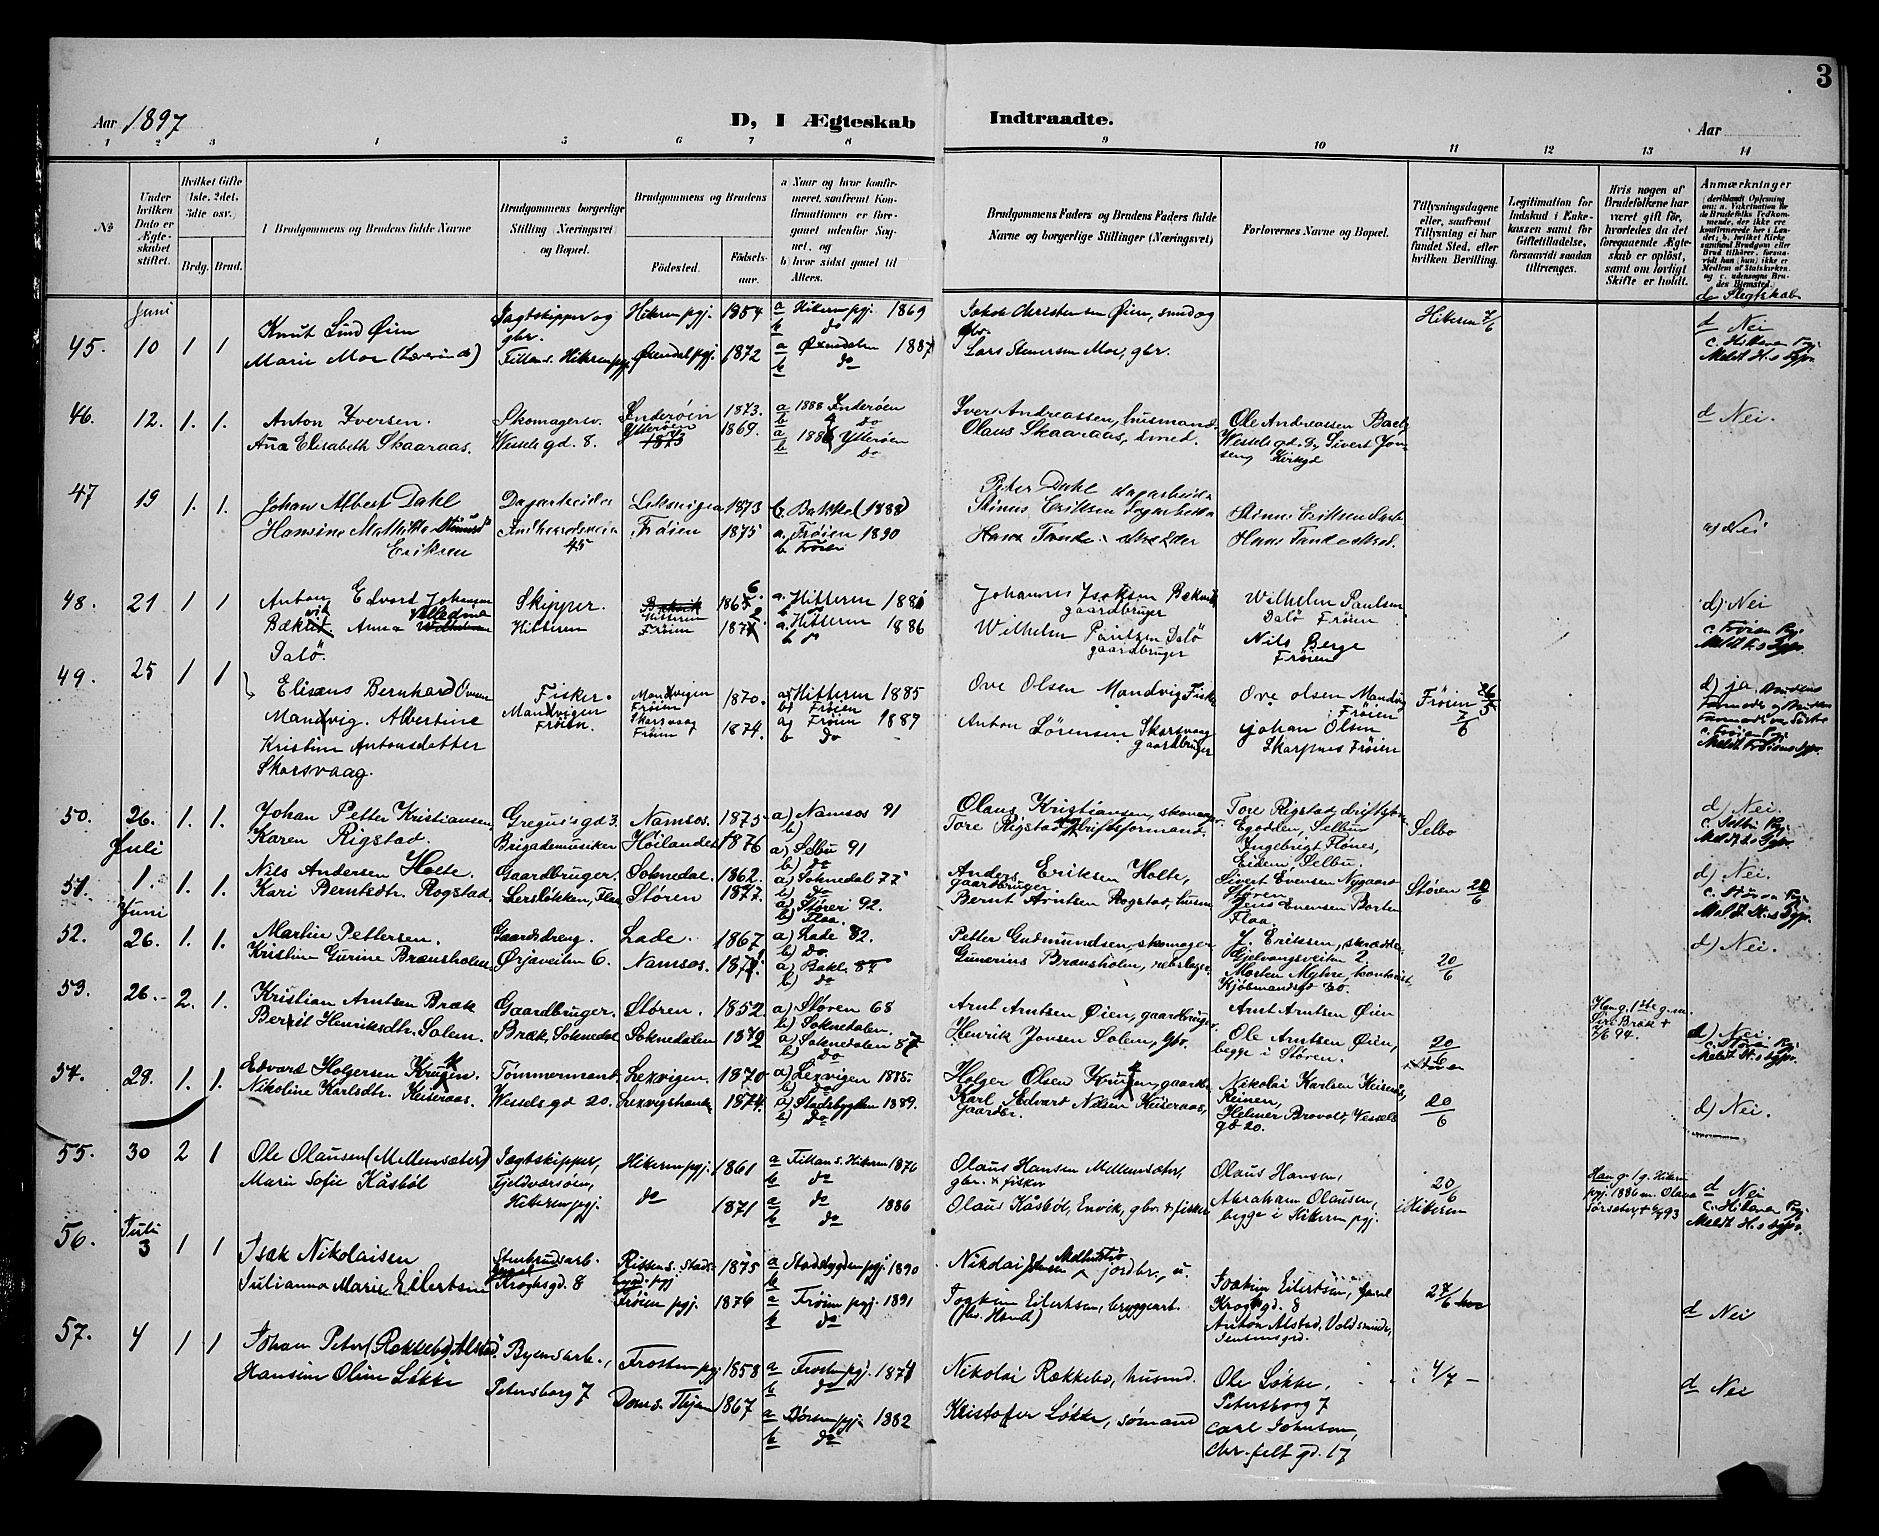 3
Aar 1897
D, I Ægteskab Indtraadte.
Aar
1 2 3 4 5 6 7 8 9 10 11 12 13 14
№
Under hvilken Dato er Ægteskabet stiftet.
Hvilket Gifte (1ste, 2det, 3die osv.)
Brdg. Brud.
Brudgommens og Brudens fulde Navne
Brudgommens borgerlige Stilling (Næringsvei) og Bopæl.
Brudgommens og Brudens
Fødested.
Fødselsaar.
a) Naar og hvor konfirmeret, saafremt Konfirmationen er foregaaet udenfor Sognet, og
b) hvor sidst gaaet til Alters.
Brudgommens Faders og Brudens Faders fulde Navne og borgerlige Stillinger (Næringsvei)
Forlovernes Navne og Bopæl.
Tillysningsdagene eller, saafremt Tillysning ei har fundet Sted, efter hvilken Bevilling.
Legitimation for Indskud i Enkekassen samt for Giftetilladelse, forsaavidt saadan tiltrænges.
Hvis nogen af Brudefolkene har været gift før, hvorledes da det foregaaende Ægteskab er opløst, samt om lovligt Skifte er holdt.
Anmærkninger
d. Slegtskab
Juni
45. 10 1 1 Knut Lund Øien Jagtskipper og gbr. Hiteren pgj. 1854 a Hiteren pgj. 1869 b do Jakob Christensen Øien, smed og gbr. Hiteren 7/6 d Nei
Marie Moe Fillan s. Hiteren pgj. Øxendal pgj. 1872 a Øxendalen 1887 b do Lars Steversen Moe, gbr. c. Hiteren Pgj. Meldt H.s Sgpr.
46. 12. 1. 1. Anton Iversen. Skomagersv. Inderøen 1873. a 1888 Inderøen b do Iver Andreassen, husmand Ole Andreassen d Nei.
Ana Elisabeth Skaaraas. Wessels gd. 8. Ytterøen 1869. a 1884 Ytterøen b Do Olaus Skaaraas, smed. Wessels gd. 8, Sivert Jonseng Kirkgd
47 19 1. 1. Johan Albert Dahl Dagarbeider Leksvigen 1873 b. Baklan (1888) Peter Dahl dagarbeider
Hansine Mathilde Eriksen 45 Frøien 1875 a. Frøien 1890 b Frøien Stinus Eriksen Dagarbeider Stinus Eriksen
Hans Tande skrædder Hans Tande skræd. a) Nei
48. 21 1 1 Anton Edvard Johansen Skipper. Hitteren 1866 a. Hitteren 1881 b do Johannes Isaksen Bækvik gaardbruger Wilhelm Paulsen Dalø Frøien d) Nei
Bækvik Anna Valledine Dalø. Hitteren Frøien 1872 a. Hitteren 1886 b do Wilhelm Paulzen Dalø gaardbruger Nils Berge Frøien c. Frøien Pgj. Meldt F.s Sgpr.
49. 25 1 1 Elisæus Bernhard Ovesen Fisker. Mandvigen Frøien 1870. a) Hitteren 1885 b) Frøien Ove Olsen Mandvig Fisker Ove Olsen Mandvig Frøien Frøien 26/5 d) ja
Mandvig. Albertine Mandvigen Frøien. Skarsvaag Frøien 1874. a) Frøien 1889 b do Anton Lørensen Skarsvaag gaardbruger Johan Olsen Skarpnes Frøien 7/6 c. Frøien Pgj.
Kristine Antonsdatter Meldt Frøiens Sgpr.
Skarsvaag.
50. 26. 1. 1. Johan Petter Kristiansen, Gregus's gd 3. Namsos. 1875 a) Namsos 91 b) Olaus Kristiansen, skomager. Tore Rigstad, driftsfor. Selbo d) Nei.
Karen Rigstad. Brigademusiker Høilandet 1876 a) Selbu 91 b) do Tore Rigstad driftsformand. Egodden, Selbu c. Selbu Pgj.
Ingebrigt Flønes, Eidem, Selbu. Meldt S.s Sgpr.
Juli
51. 1. 1. 1. Nils Andersen Holte Gaardbruger. Soknedal. 1862. a) Soknedal 77 b) do Anders Eriksen Holte, gaardbruger Sivert Evensen Nygaard Støren Støren 20/6 d) Nei.
Kari Berntsdtr. Rogstad. Lersløkken, Flaa Støren 1877. a) Støren 92. b) Flaa. Bernt Arntsen Rogstad, husm. Jens Evensen Borten Flaa c. Støren Pgj. Meldt St.s Sgpr.
Juni
52. 26. 1. 1. Martin Pettersen. Gaardsdreng. Lade. 1867 a) Lade 82. b) Do Petter Gudmundsen, skomager J. Erikssen, skrædder Gjelvangsveiten 2. 20/6 d) Nei.
Kristine Gurine Brænsholm Ørjaveiten 6. Namsos. a) Bakl. 87 b) do Gunerius Brænsholm, rebslager. Morten Myhre, kontorist, Kjøbmandsgd 30.
53. 26. 2. 1. Kristian Arntsen Bræk Gaardbruger. Støren. 1852 a) Støren 68 b) Soknedalen. Arnt Arntsen Øien, gaardbruger. Arnt Arntsen Øien 20/6 i Støren Han g. 1ste g. m. Siri Bræk + 7/6 94. d) Nei
Berit Henriksdtr. Solem. Bræk, Soknedal Soknedalen 1872 a) Soknedalen 87 b) do Henrik Jonsen Solem, gbr. Ole Arntsen Øien, begge i Støren. c. Støren Pgj. Meldt St.s Sgpr.
54. 28. 1. 1. Edvard Holgersen Tømmermand. Lexvigen. 1870 a) Lexvigen 1885. b) do Holger Olsen Nikolai Karlsen Keiseraas, Reinen, 20/6
Nikoline Karlsdtr. Keiseraas. Wessels gd 20. Lexvigstranden 1874. a) Stadsbygden 1889. b) do Karl Edvard Nilsen Keiseraas, Gaardbr. Helmer Brovolt, Wessels gd 20. d) Nei.
55. 30 2 1 Ole Olausen (Mellemsæter) Jægtskipper, Hiteren pgj. 1861 a Fillan s. Hiteren 1876 b do Olaus Hansen Mellemsæter, gbr. & fisker Olaus Hansen, 20/6 i Hiteren Han g. 1 g. Hiteren pgj. 1886 m. d Nei
Marie Sofie Kåsbøl Fjeldværsøen, Hiteren pgj. do 1871 a do 1886 b do Olaus Kåsbøl, Envik, gbr. & fisker Abraham Olausen, begge i Hiteren pgj. c. Hiteren Pgj. Meldt H.s Sgpr.
56. Juli 3 1 1 Isak Nikolaisen Stenbrudsarb. Rissen s. Stadsbygd. pgj 1875 a Stadsbygden pgj. 1890 b Nikolai Jensen Melhustrø jordbr. 27/6
Julianna Marie Eilertsen Kroghs gd. 8 Frøien pgj. 1876 a Frøien pgj. 1891 b do Joakim Eilertsen, bryggearb. Joakim Eilertsen, Krogh gd. 8 Anton Alstad, Voldsminde, d Nei
57. 4 1 1 Johan Peter (Rekkebo) Alstad Byensarb., Frosten pgj 1858 a Frosten pgj. 1874 b do Nikolai Rækkebo, husmd. Ole Løkke, Petersborg 7 4/7 – d Nei
Hansine Oline Løkke Petersborg 7 Doms. Thjem 1867 a Børsen pgj. 1882 b do Kristofer Løkke, sømand Carl Johnsen, Chr. felt gd. 17